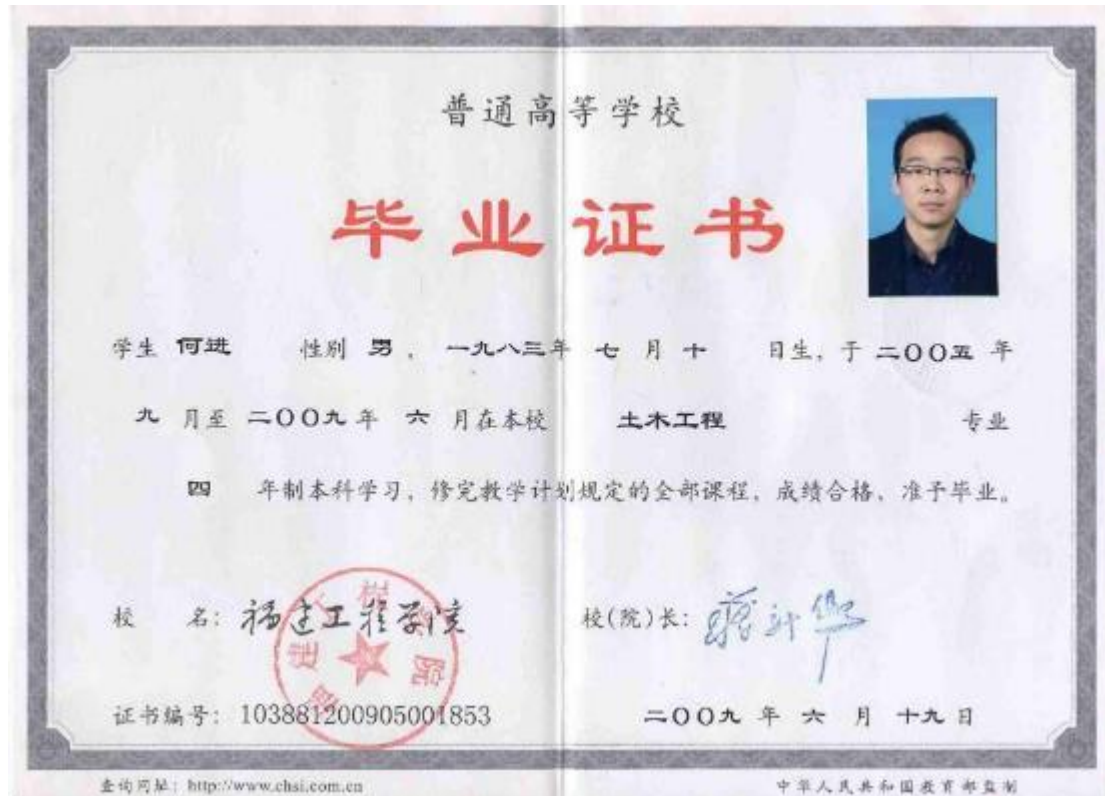 普通高等学校
毕业证书
学生 何进 性别 男， 一九八三年 七 月 十 日生，于 二〇〇五 年
九 月至 二〇〇九 年 六 月在本校 土木工程 专业
四 年制本科学习，修完教学计划规定的全部课程，成绩合格，准予毕业。
校 名：福建工程学院
校(院)长：
证书编号：103881200905001853
二〇〇九 年 六 月 十九 日
查询网址：http://www.chsi.com.cn
中华人民共和国教育部监制